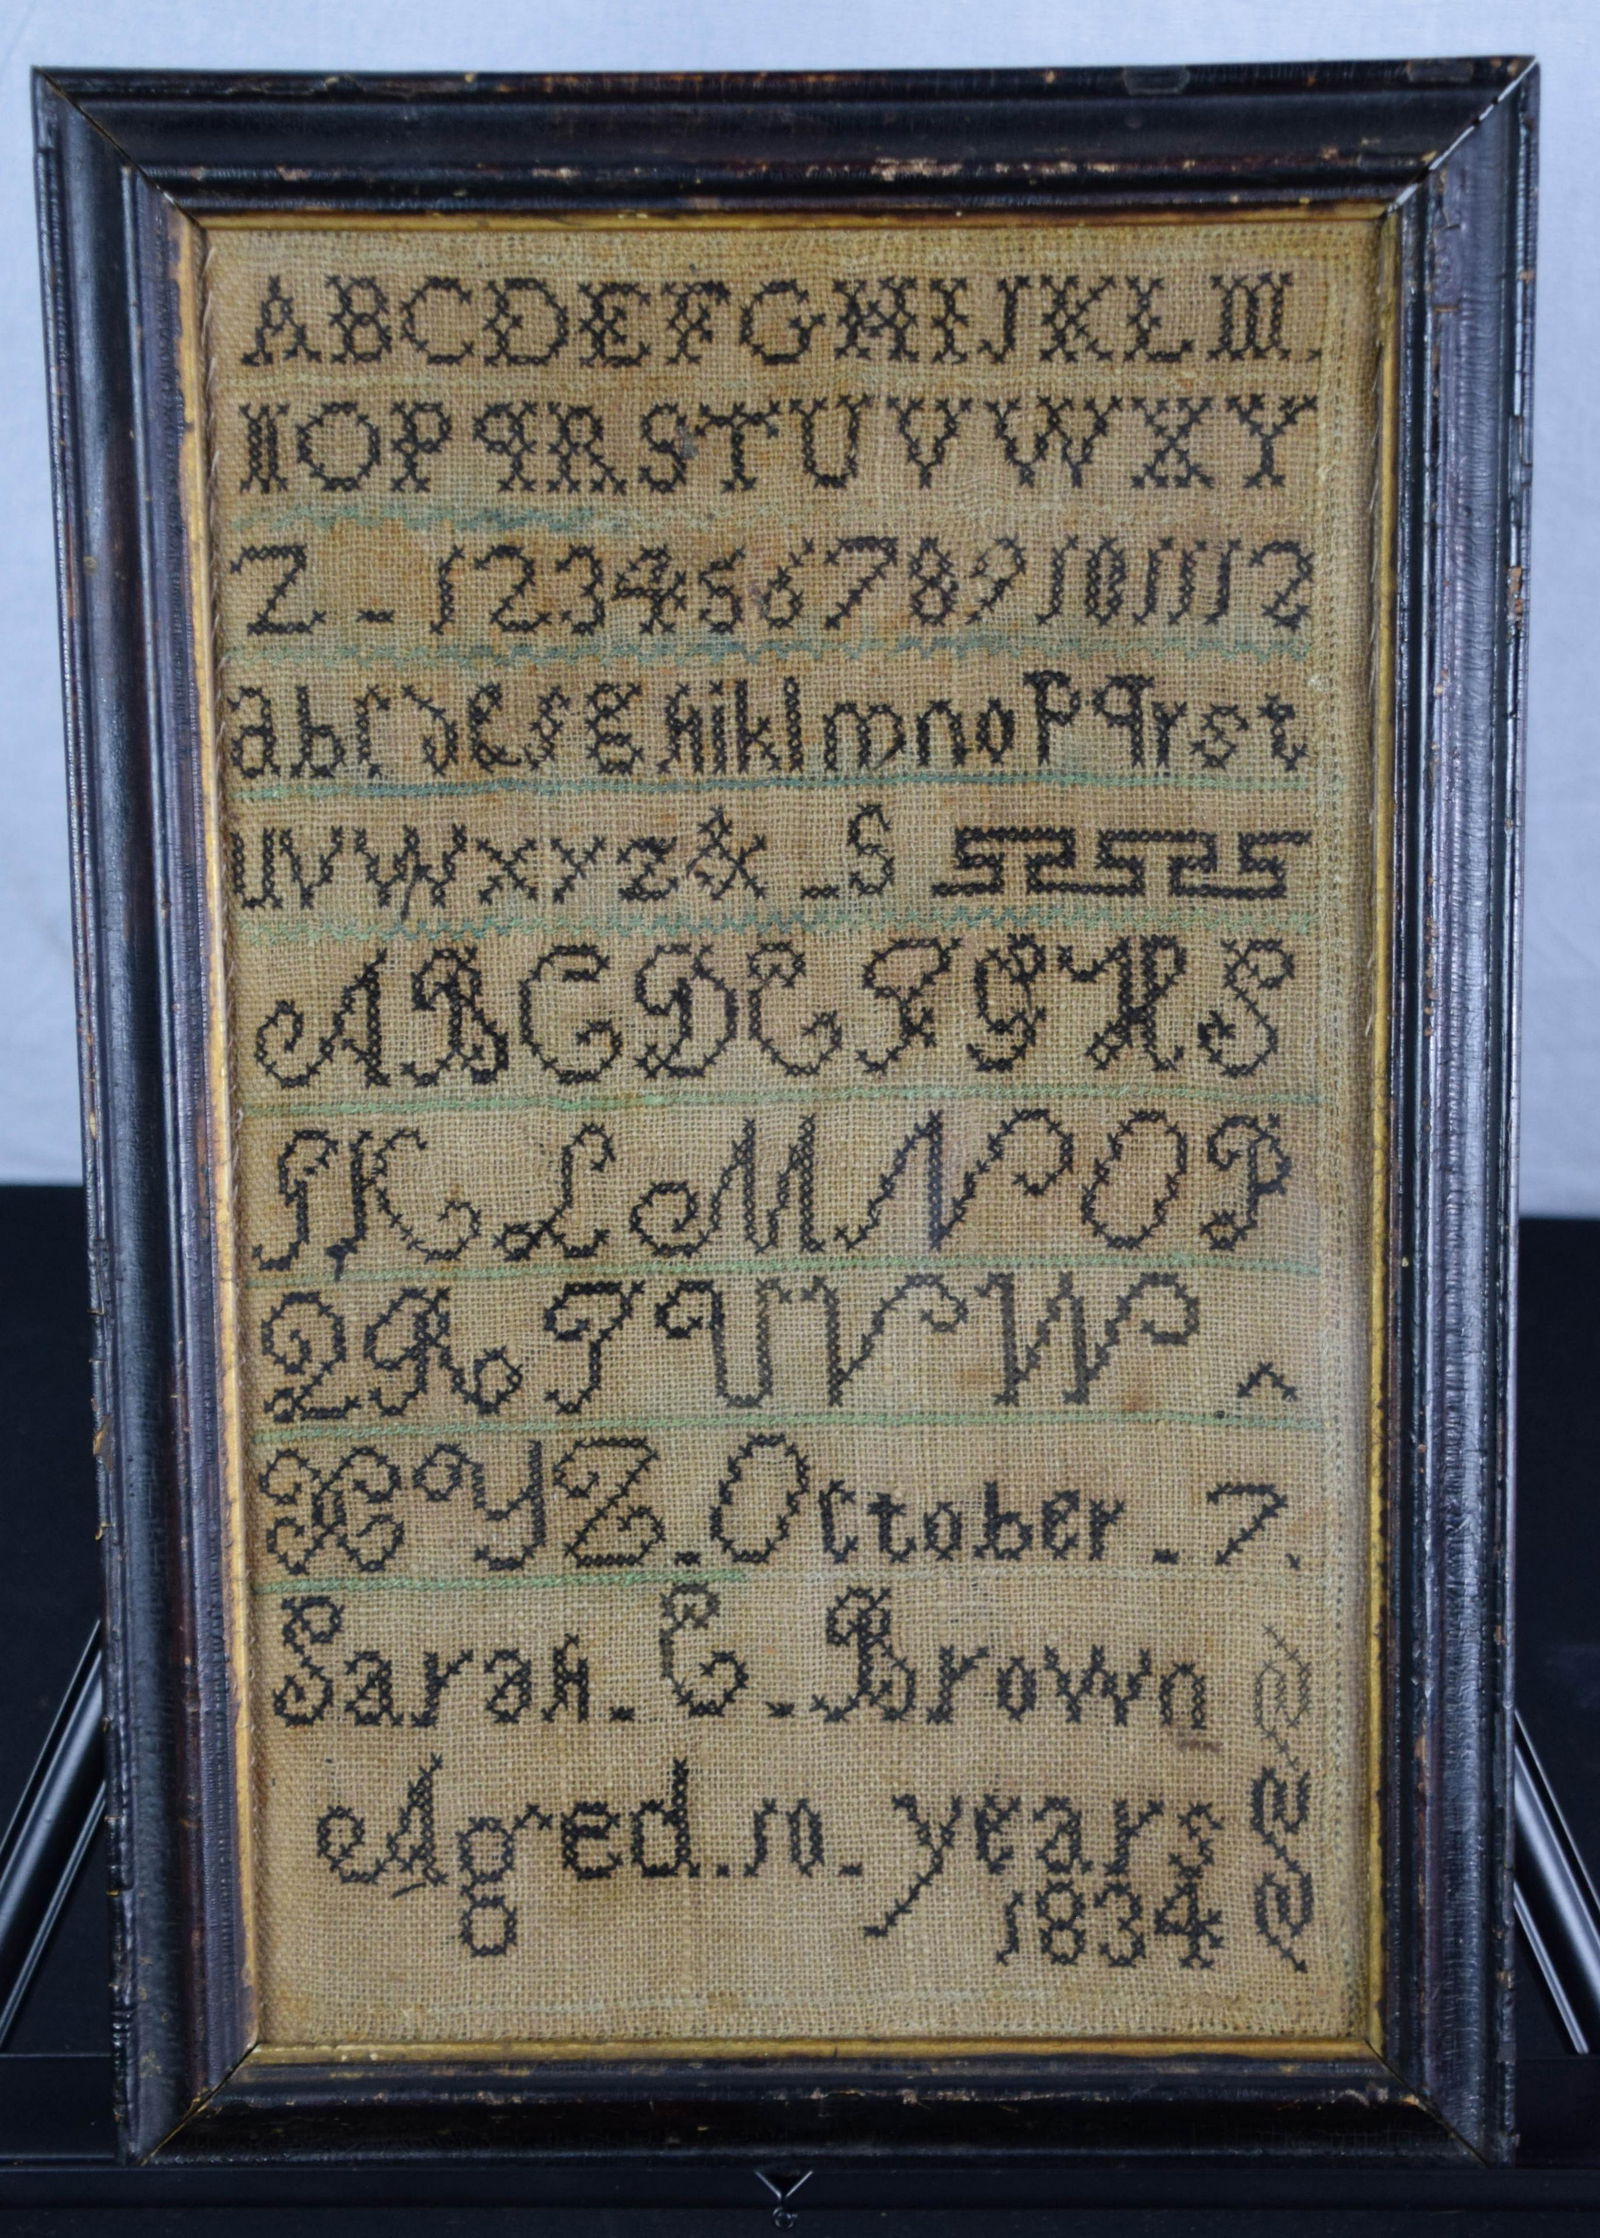 ABCDEFGHIJKLM
NOPQRSTUVWXY
Z - 1 2 3 4 5 6 7 8 9 10 11 12
abcdefghiklmnopqrst
uvwxyz& - S
ABCDEFGHI
JKLMNOP
QRTUVW
XYZ - October - 7.
Sarah - E - Brown
Aged - 10 - years
1834